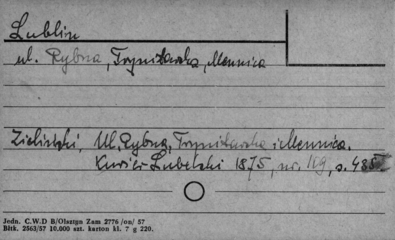 Lublin
ul. Rybna, Trynitarska, Mennica
Zieliński, Ul. Rybna, Trynitarska i Mennica.
Kurier Lubelski 1875, nr. 119, s. 485
Jedn. C.W.D B/Olsztyn Zam 2776 /on/ 57
Bltk. 2563/57 10.000 szt. karton kl. 7 g 220.